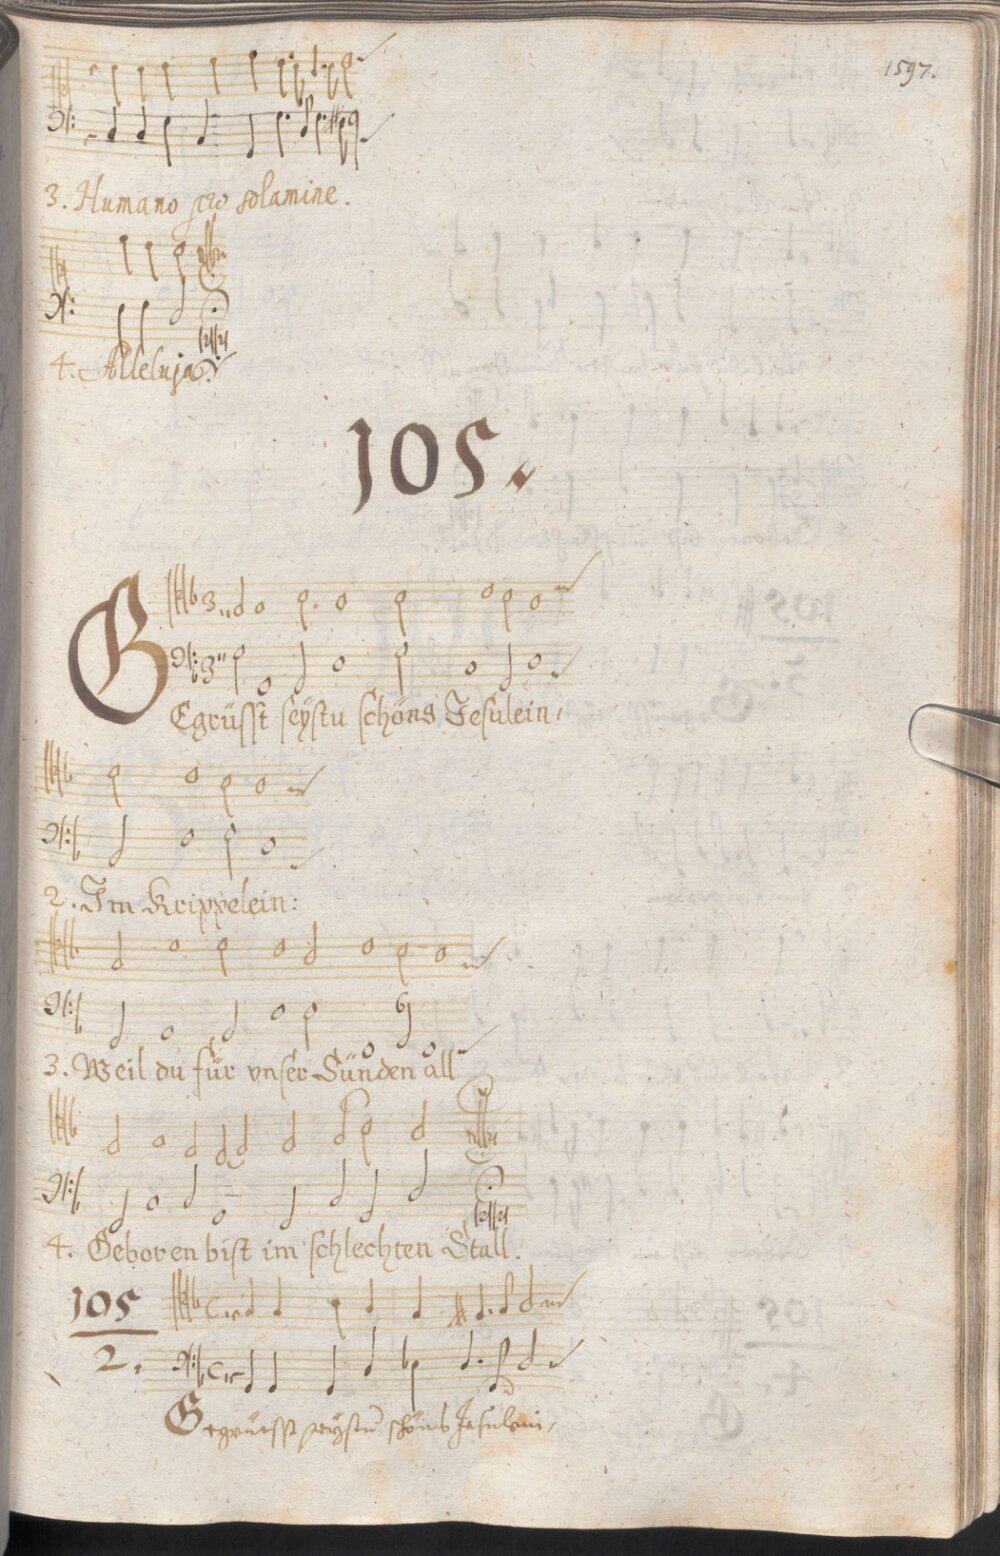 1597.
3. Humano pro solamine.
4. Alleluja.
105.
GEgrüsst seÿstu schöns Jesulein,
2. Im Krippelein:
3. Weil du für vnser Sünden all
4. Geboren bist im schlechten Stall.
105
2.
Gegrüesst seÿstu schöns Jesulein,